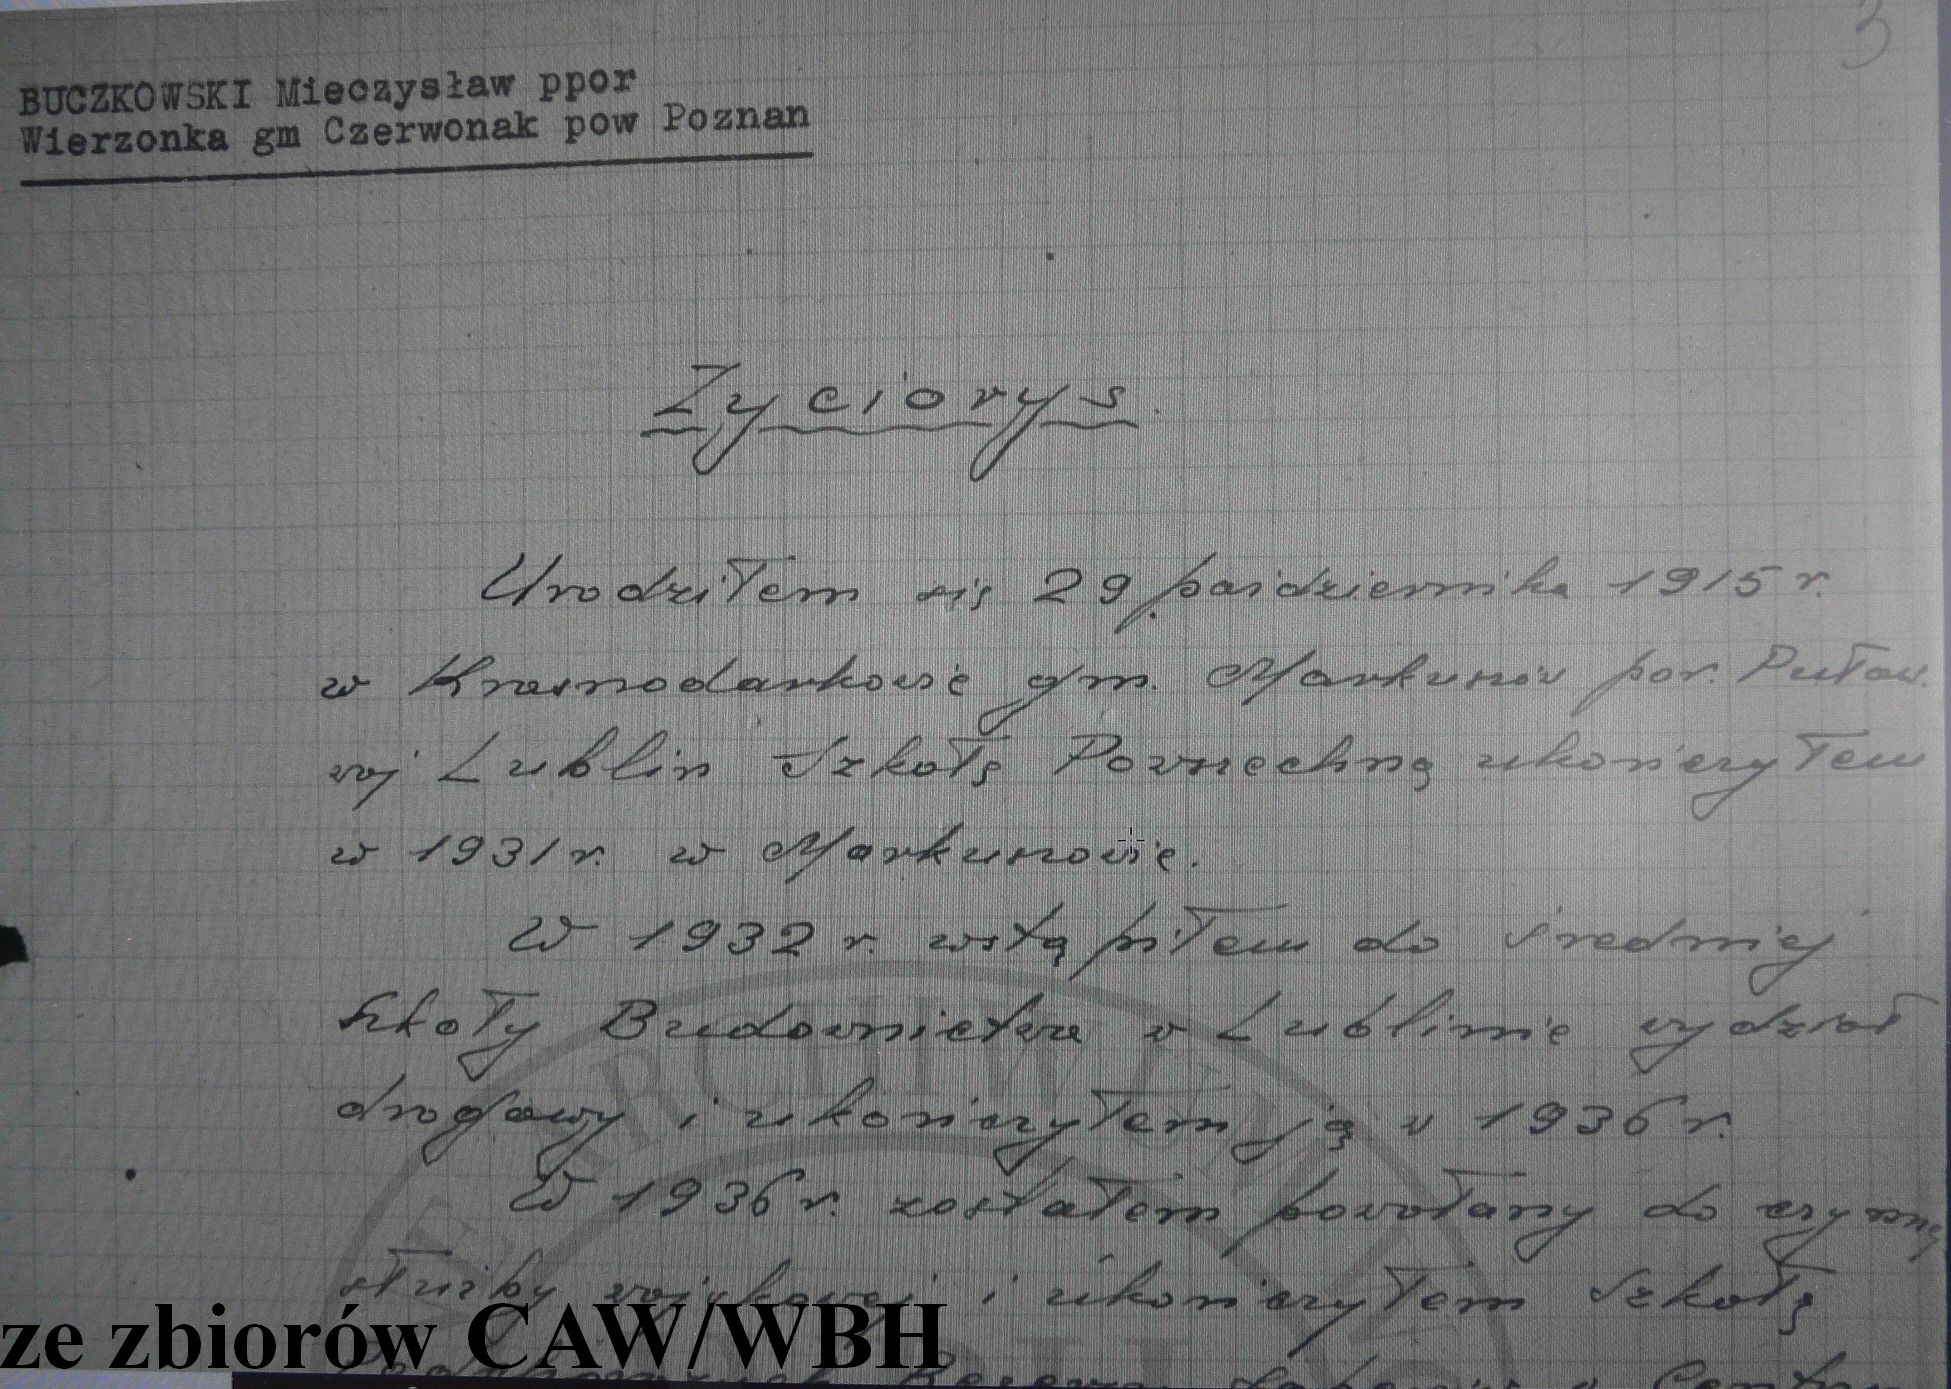 3
BUCZKOWSKI Mieczysław ppor
Wierzonka gm Czerwonak pow Poznan
Życiorys.
Urodziłem się 29 października 1915 r.
w gm. Markuszów pow. Puław.
woj Lublin Szkołę Powszechną ukończyłem
w 1931 r. w Markuszowie.
W 1932 r. wstąpiłem do średniej
szkoły Budownictwa w Lublinie wydział
drogowy i ukończyłem ją w 1936 r.
W 1936 r. zostałem powołany do czynnej
służby wojskowej i ukończyłem Szkołę
Rezerw
ARCHIWUM
ze zbiorów CAW/WBH